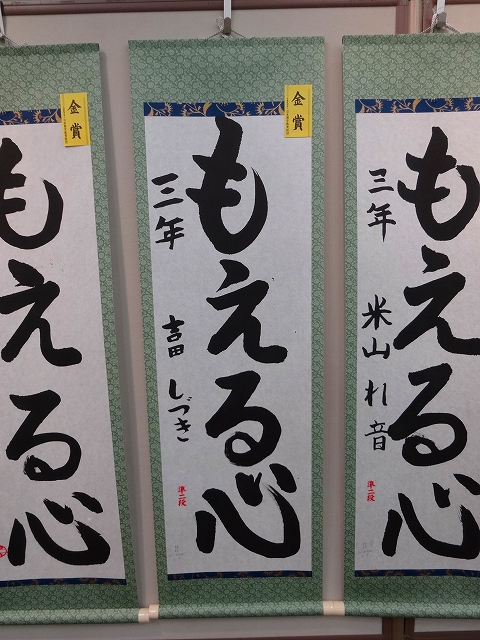 もえる心
三年 米山 れ音
準二段
金賞
もえる心
三年 吉田 しづき
準二段
金賞
もえる心